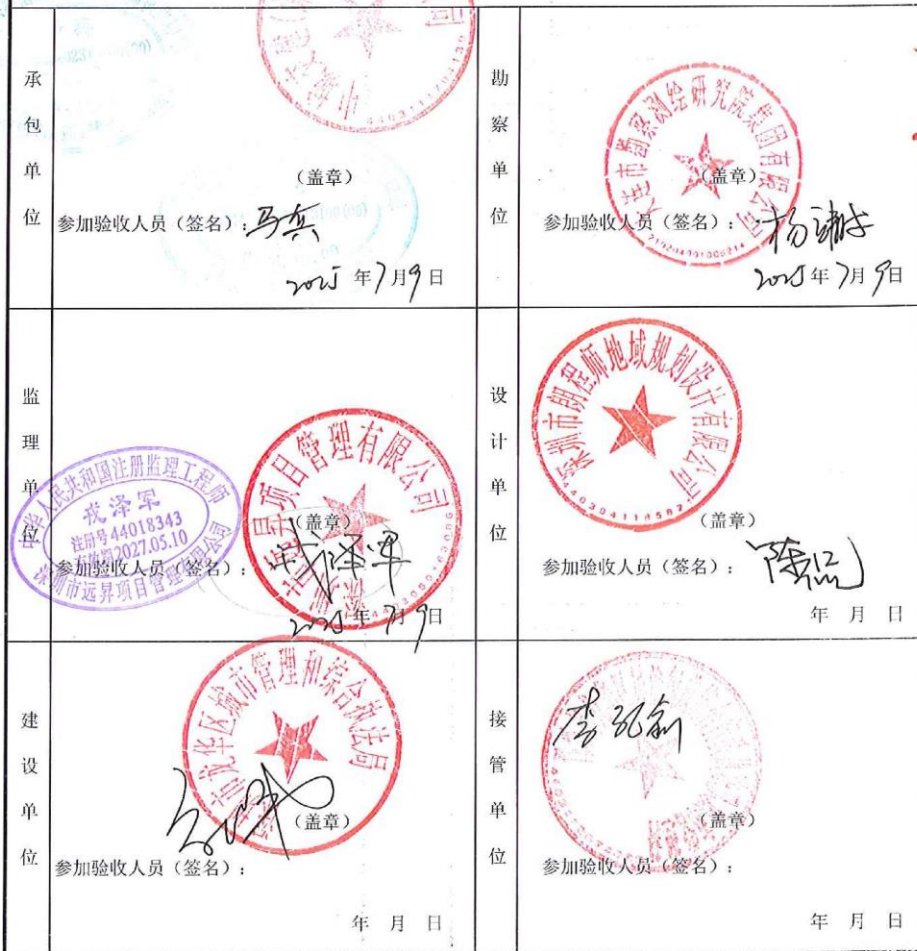 承包单位
4403111704130
(盖章)
参加验收人员(签名):马兵
2025年7月9日
勘察单位
大连市勘察测绘研究院集团有限公司
(盖章)
参加验收人员(签名):
2025年7月9日
监理单位
中华人民共和国注册监理工程师
戎泽军
注册号44018343
有效期2027.05.10
深圳市远昇项目管理有限公司
深圳市远昇项目管理有限公司
(盖章)
参加验收人员(签名):戎泽军
2025年7月9日
设计单位
深圳市朗程师地域规划设计有限公司
(盖章)
参加验收人员(签名):
年 月 日
建设单位
深圳市龙华区城市管理和综合执法局
(盖章)
参加验收人员(签名):
年 月 日
接管单位
(盖章)
参加验收人员(签名):
年 月 日